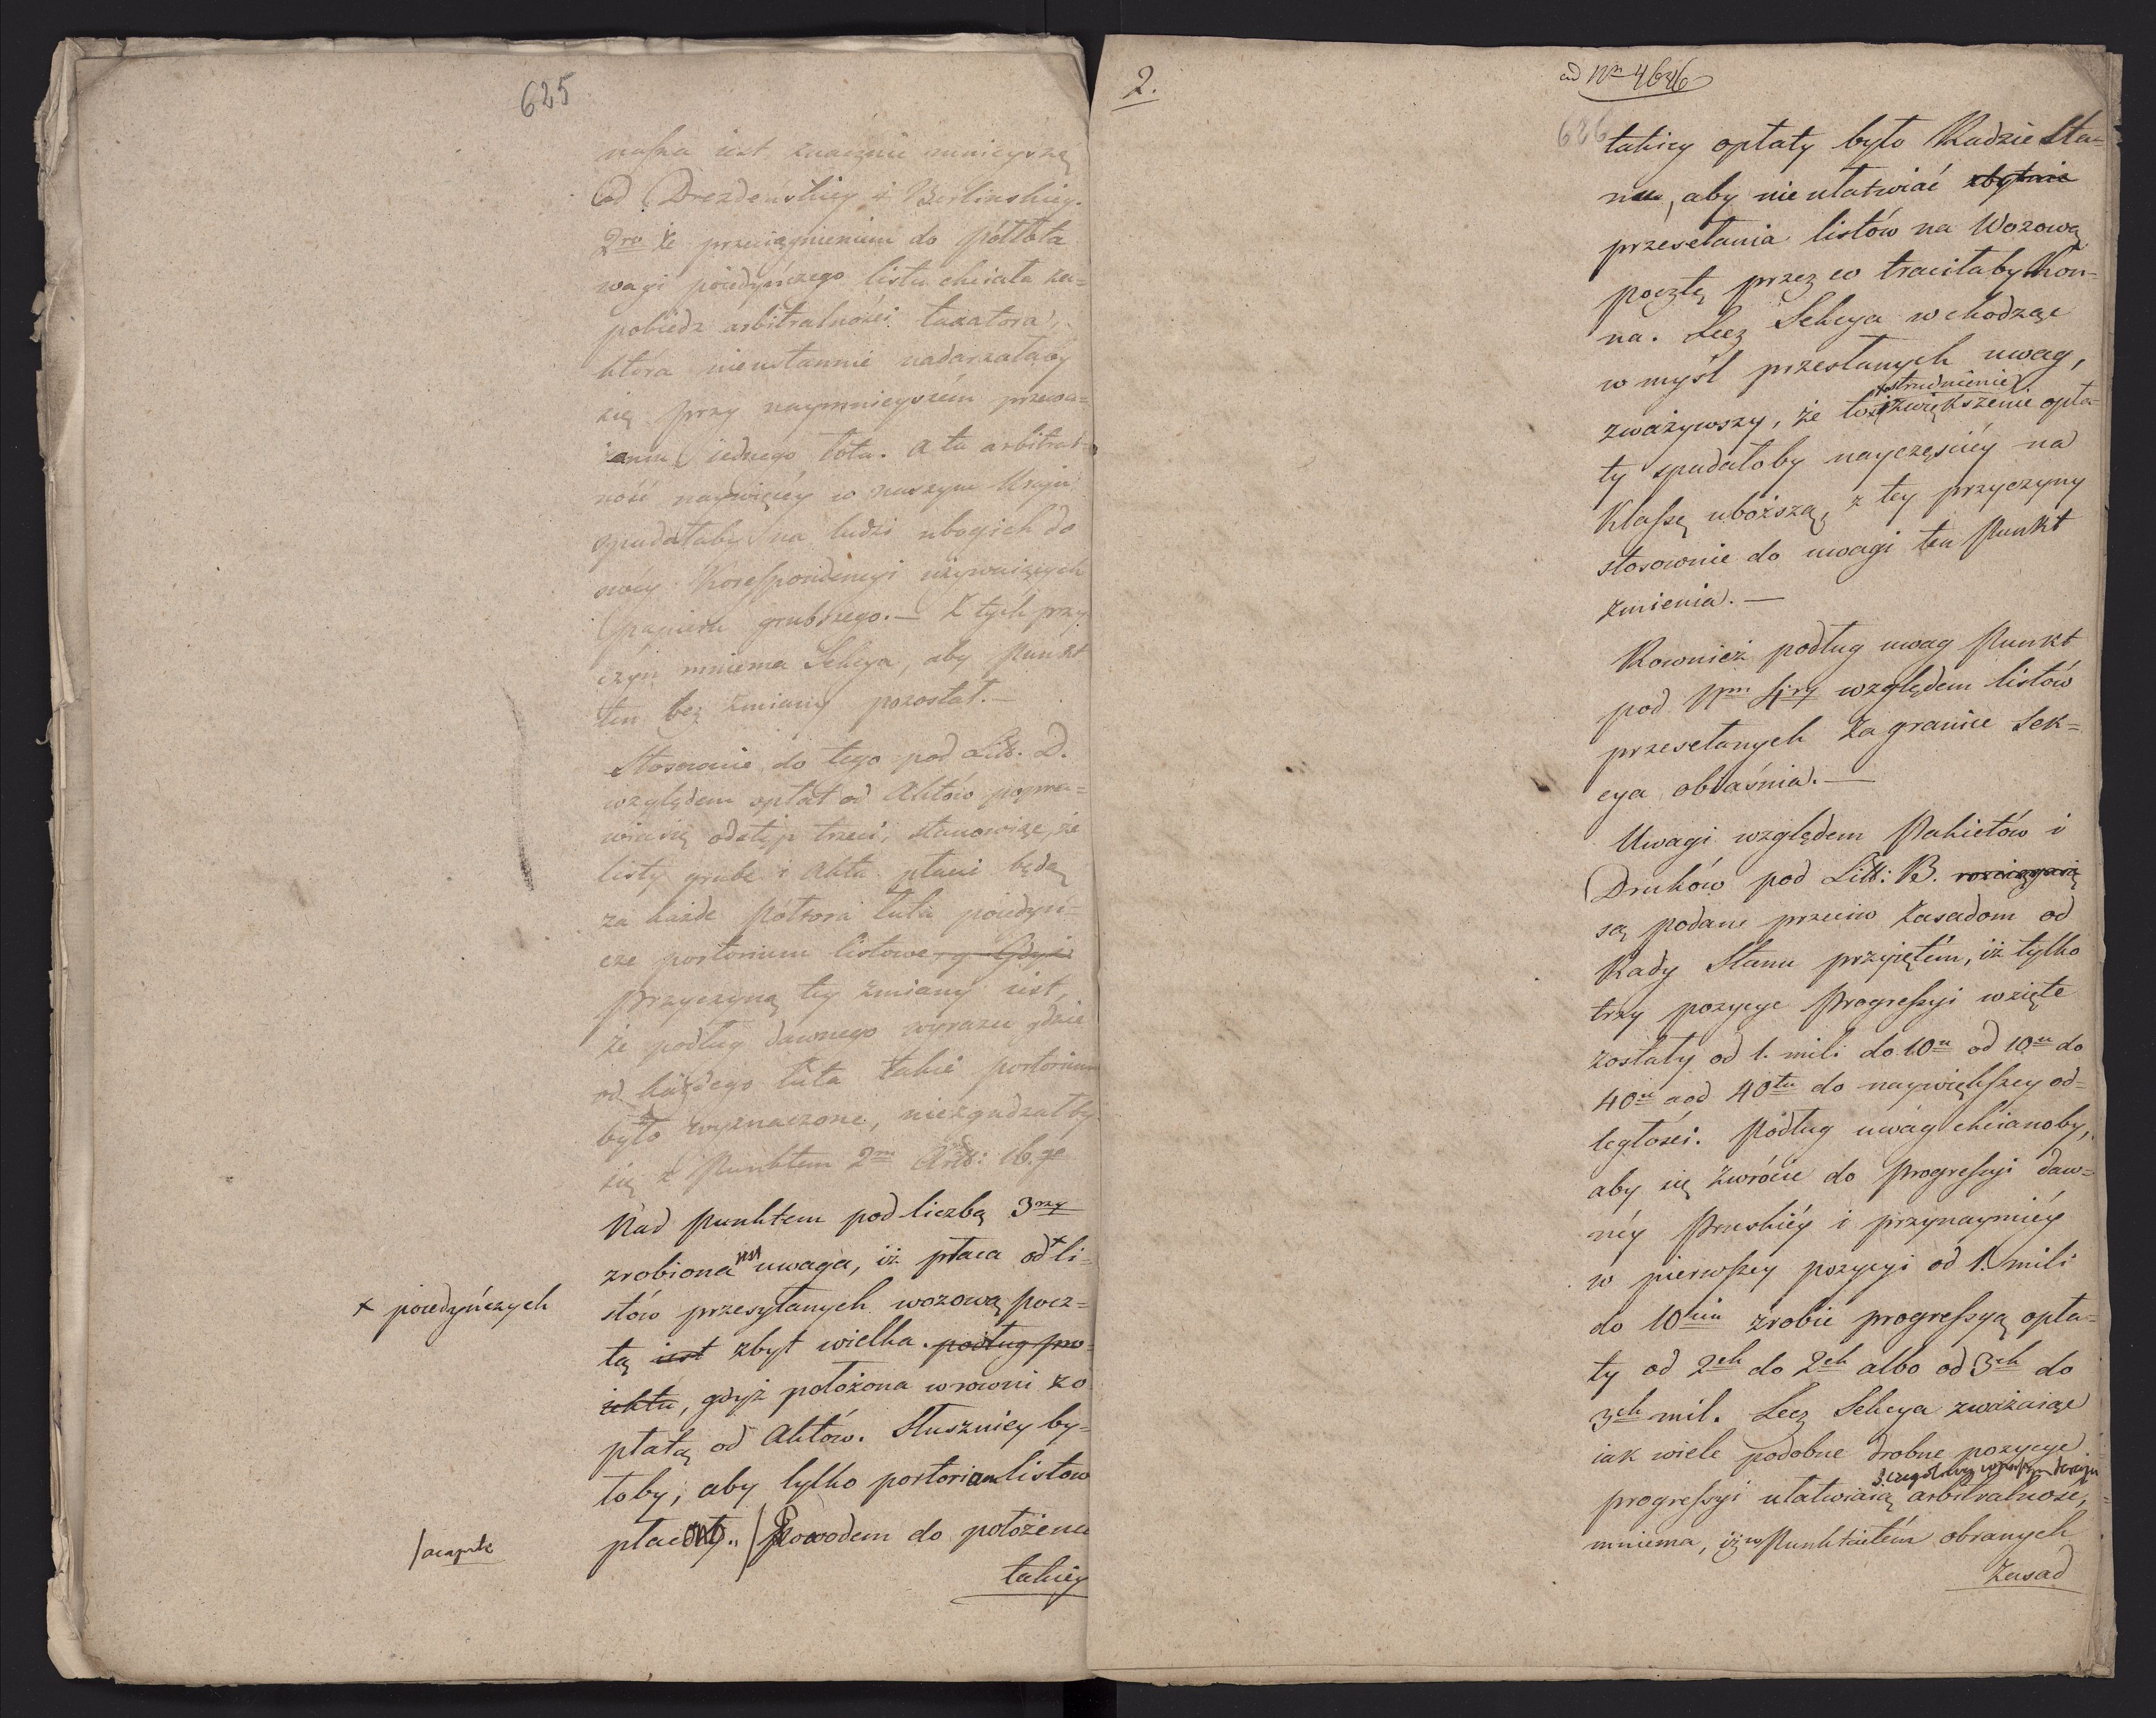 625
naſza iest znacznie mnieyszą
od Drezdeńskiey i Berlinskiey.
2re że przeciągnieniem do półłota
wagi poiedyńczego listu chciała za=
pobiedz arbitralności taxatora,
która nieustannie nadarzałaby
się przy naymnieyszém przewa=
żeniu iednego łóta. A ta arbitral=
ność naywięcéy w naszym Kraju
spadałaby na ludzi ubogich do
swéy Koreſpondencyi używaiących
papieru grubszego. — Z tych przy
czyn mniema Sekcya, aby Punkt
ten bez zmiany pozostał. —
Stosownie do tego pod Litt. D.
względem opłat od Aktów popra=
wia się odstęp trzeci, stanowiąc, że
listy grube i Akta płacić będą
za każde półtora łuta poiedyń=
cze portorium listowe, g Gdyż
Przyczyną tey zmiany iest,
że podług dawnego wyrazu gdzie
od każdego łuta takie portorium
było wyznaczone, niezgadzałby
się z Punktem 2m Artt: 16. go
Nad Punktem pod liczbą 3ma
zrobiona iest uwaga, iż płaca od + li=
× poiedyńczych
stów przesyłanych wozową pocz=
tą iest zbyt wielka. podług pro=
iektu, gdyż położona w rowni z o
płatą od Aktów. Słuszniey by=
łoby, aby tylko portorium listow
płacono. / Powodem do położenia
/ acapite
takiey
2.
ad Nrm 4646
626
takiey opłaty było Radzie Sta=
nu, aby nie ułatwiać zbytnie
przesełania listów na Wozową
pocztę przez co traciłaby Kon=
na. Lecz Sekcya wchodząc
w myśl przesłanych uwag,
zważywszy, że to utrudnienie i zwiększenie opła=
ty spadałoby nayczęściéy na
Klaſsę uboższą, z tey przyczyny
stosownie do uwagi ten Punkt
zmienia. —
Rownież podług uwag Punkt
pod Nrm 4ry względem listów
przesełanych Zagranicę Sek=
cya obiaśnia. —
Uwagi względem Pakietów i
Druków pod Litt: B. rozciągaią
są podane przeciw zasadom od
Rady Stanu przyiętém, iż tylko
trzy pozycye Progreſsyi wzięte
zostały od 1. mili do 10u od 10u do
40u a od 40tu do naywiękſzey od=
ległości. Podług uwag chcianoby,
aby się zwrócić do progreſsyi daw=
néy Pruskiéy i przynaymniéy
w pierwſzey pozycyi od 1. mili
do 10ciu zrobić progreſsyą opła=
ty od 2ch do 2ch albo od 3ch do
3ch mil. Lecz Sekcya zważaiąc
iak wiele podobne drobne pozycye
progreſsyi ułatwiaią arbitralność,
mniema, iż w Punkcie tém obranych
zasad